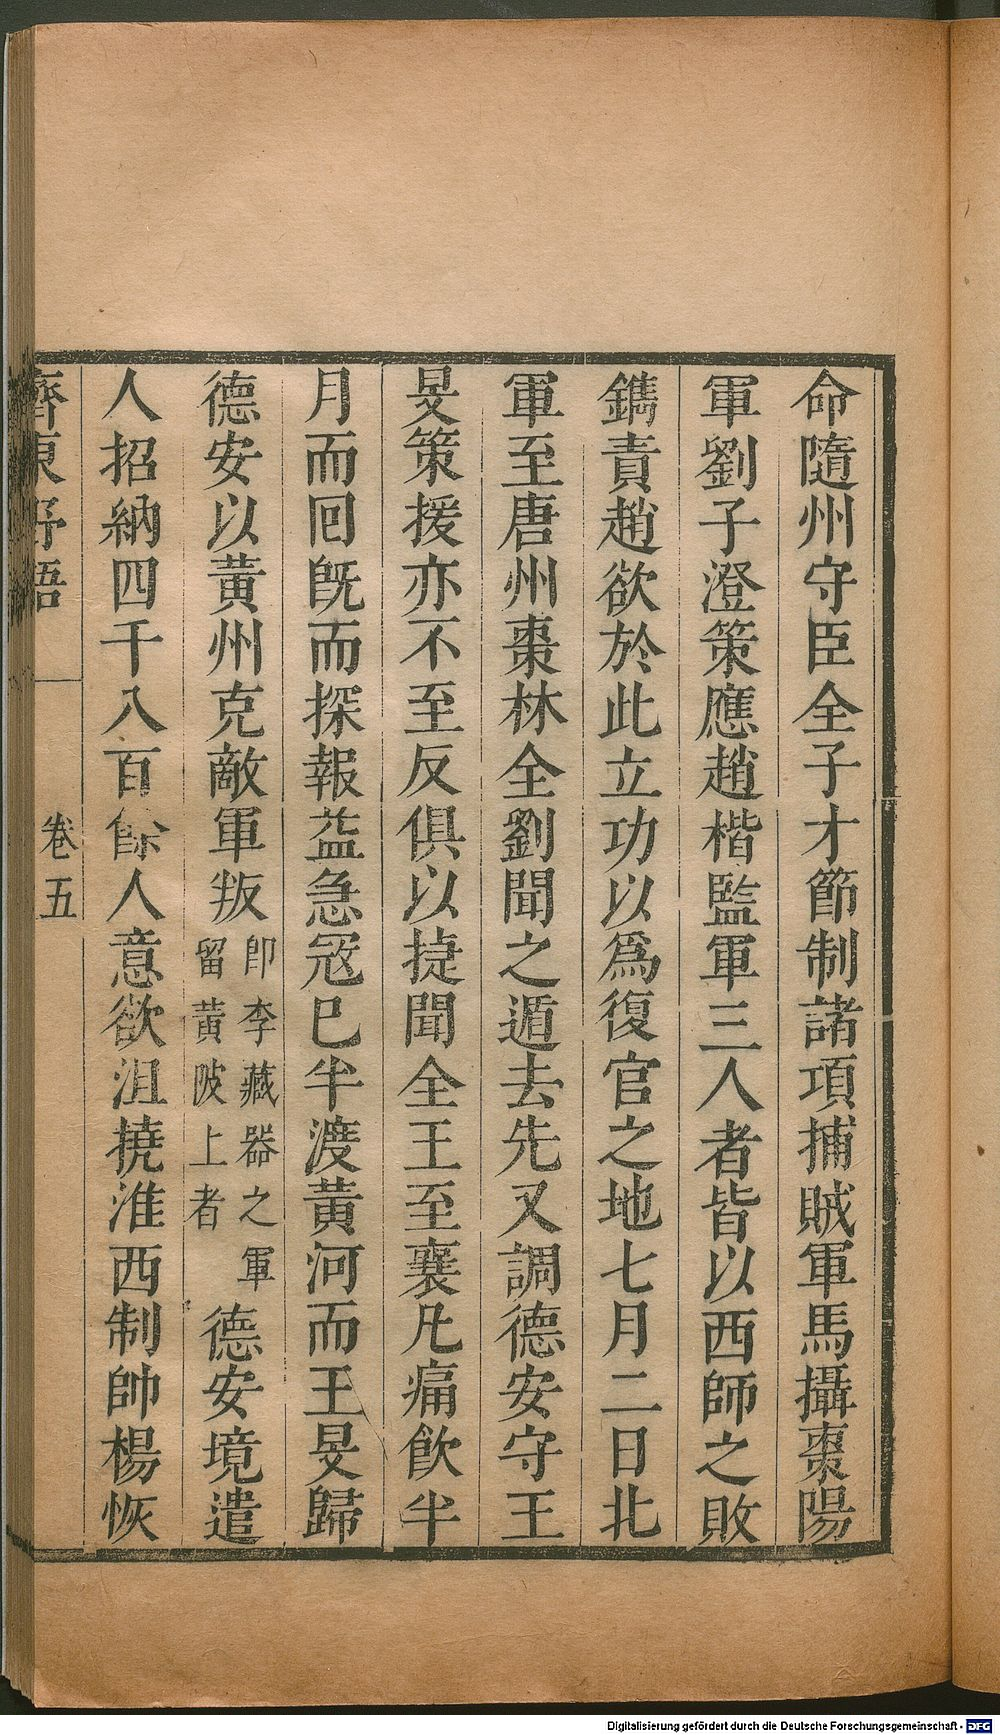 命隨州守臣全子才節制諸項捕賊軍馬攝棗陽
軍劉子澄策應趙楷監軍三人者皆以西師之敗
鐫責趙欲於此立功以爲復官之地七月二日北
軍至唐州棗林全劉聞之遁去先又調德安守王
旻策援亦不至反俱以捷聞全王至襄凡痛飲半
月而回旣而探報益急冦巳半渡黃河而王旻歸
德安以黃州克敵軍叛
卽李藏器之軍
留黃陂上者
德安境遣
人招納四千八百餘人意欲沮撓淮西制帥楊恢
齊東野語
卷五
Digitalisierung gefördert durch die Deutsche Forschungsgemeinschaft - DFG